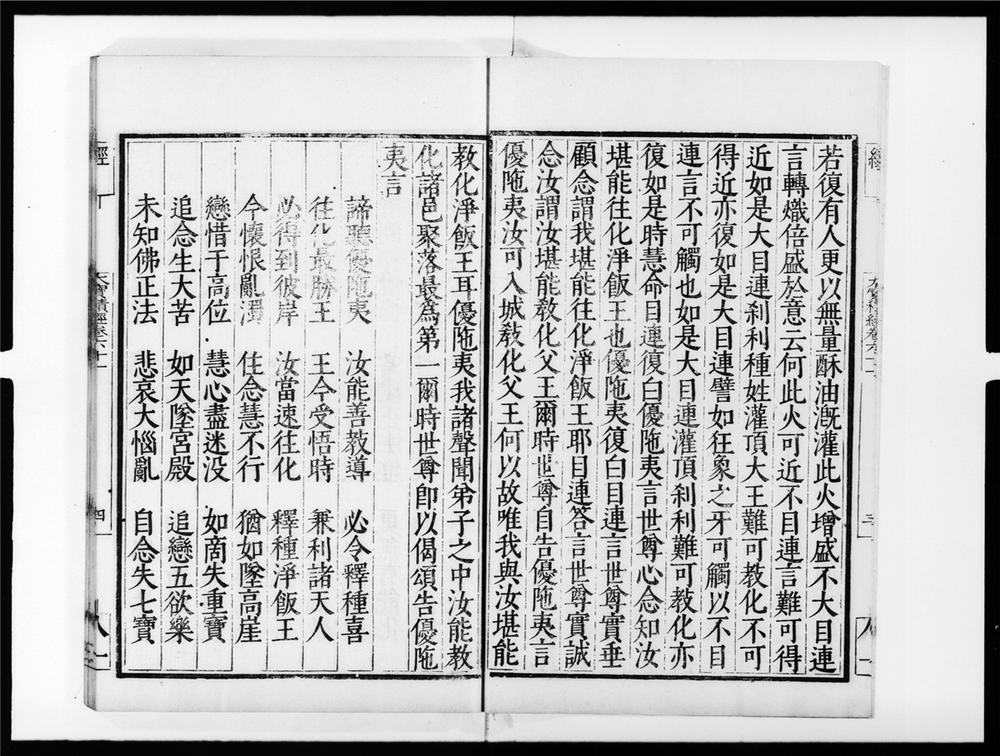 若復有人更以無量酥油漑灌此火增盛不大目連
言轉熾倍盛於意云何此火可近不目連言難可得
近如是大目連刹利種姓灌頂大王難可教化不可
得近亦復如是大目連譬如狂象之牙可觸以不目
連言不可觸也如是大目連灌頂刹利難可教化亦
復如是時慧命目連復白優陁夷言世尊心念知汝
堪能往化淨飯王也優陁夷復白目連言世尊實垂
顧念謂我堪能往化淨飯王耶目連答言世尊實誠
念汝謂汝堪能教化父王爾時世尊自告優陁夷言
優陁夷汝可入城教化父王何以故唯我與汝堪能
教化淨飯王耳優陁夷我諸聲聞弟子之中汝能教
化諸邑聚落最為第一爾時世尊卽以偈頌告優陁
夷言
諦聽優陁夷 汝能善教導 必令釋種喜
往化最勝王 王今受悟時 兼利諸天人
必得到彼岸 汝當速往化 釋種淨飯王
今懷恨亂濁 住念慧不行 猶如墜高崖
戀惜于高位 慧心盡迷没 如商失重寶
追念生大苦 如天墜宮殿 追戀五欲樂
未知佛正法 悲哀大惱亂 自念失七寶
經
大寶積經卷六十一
四